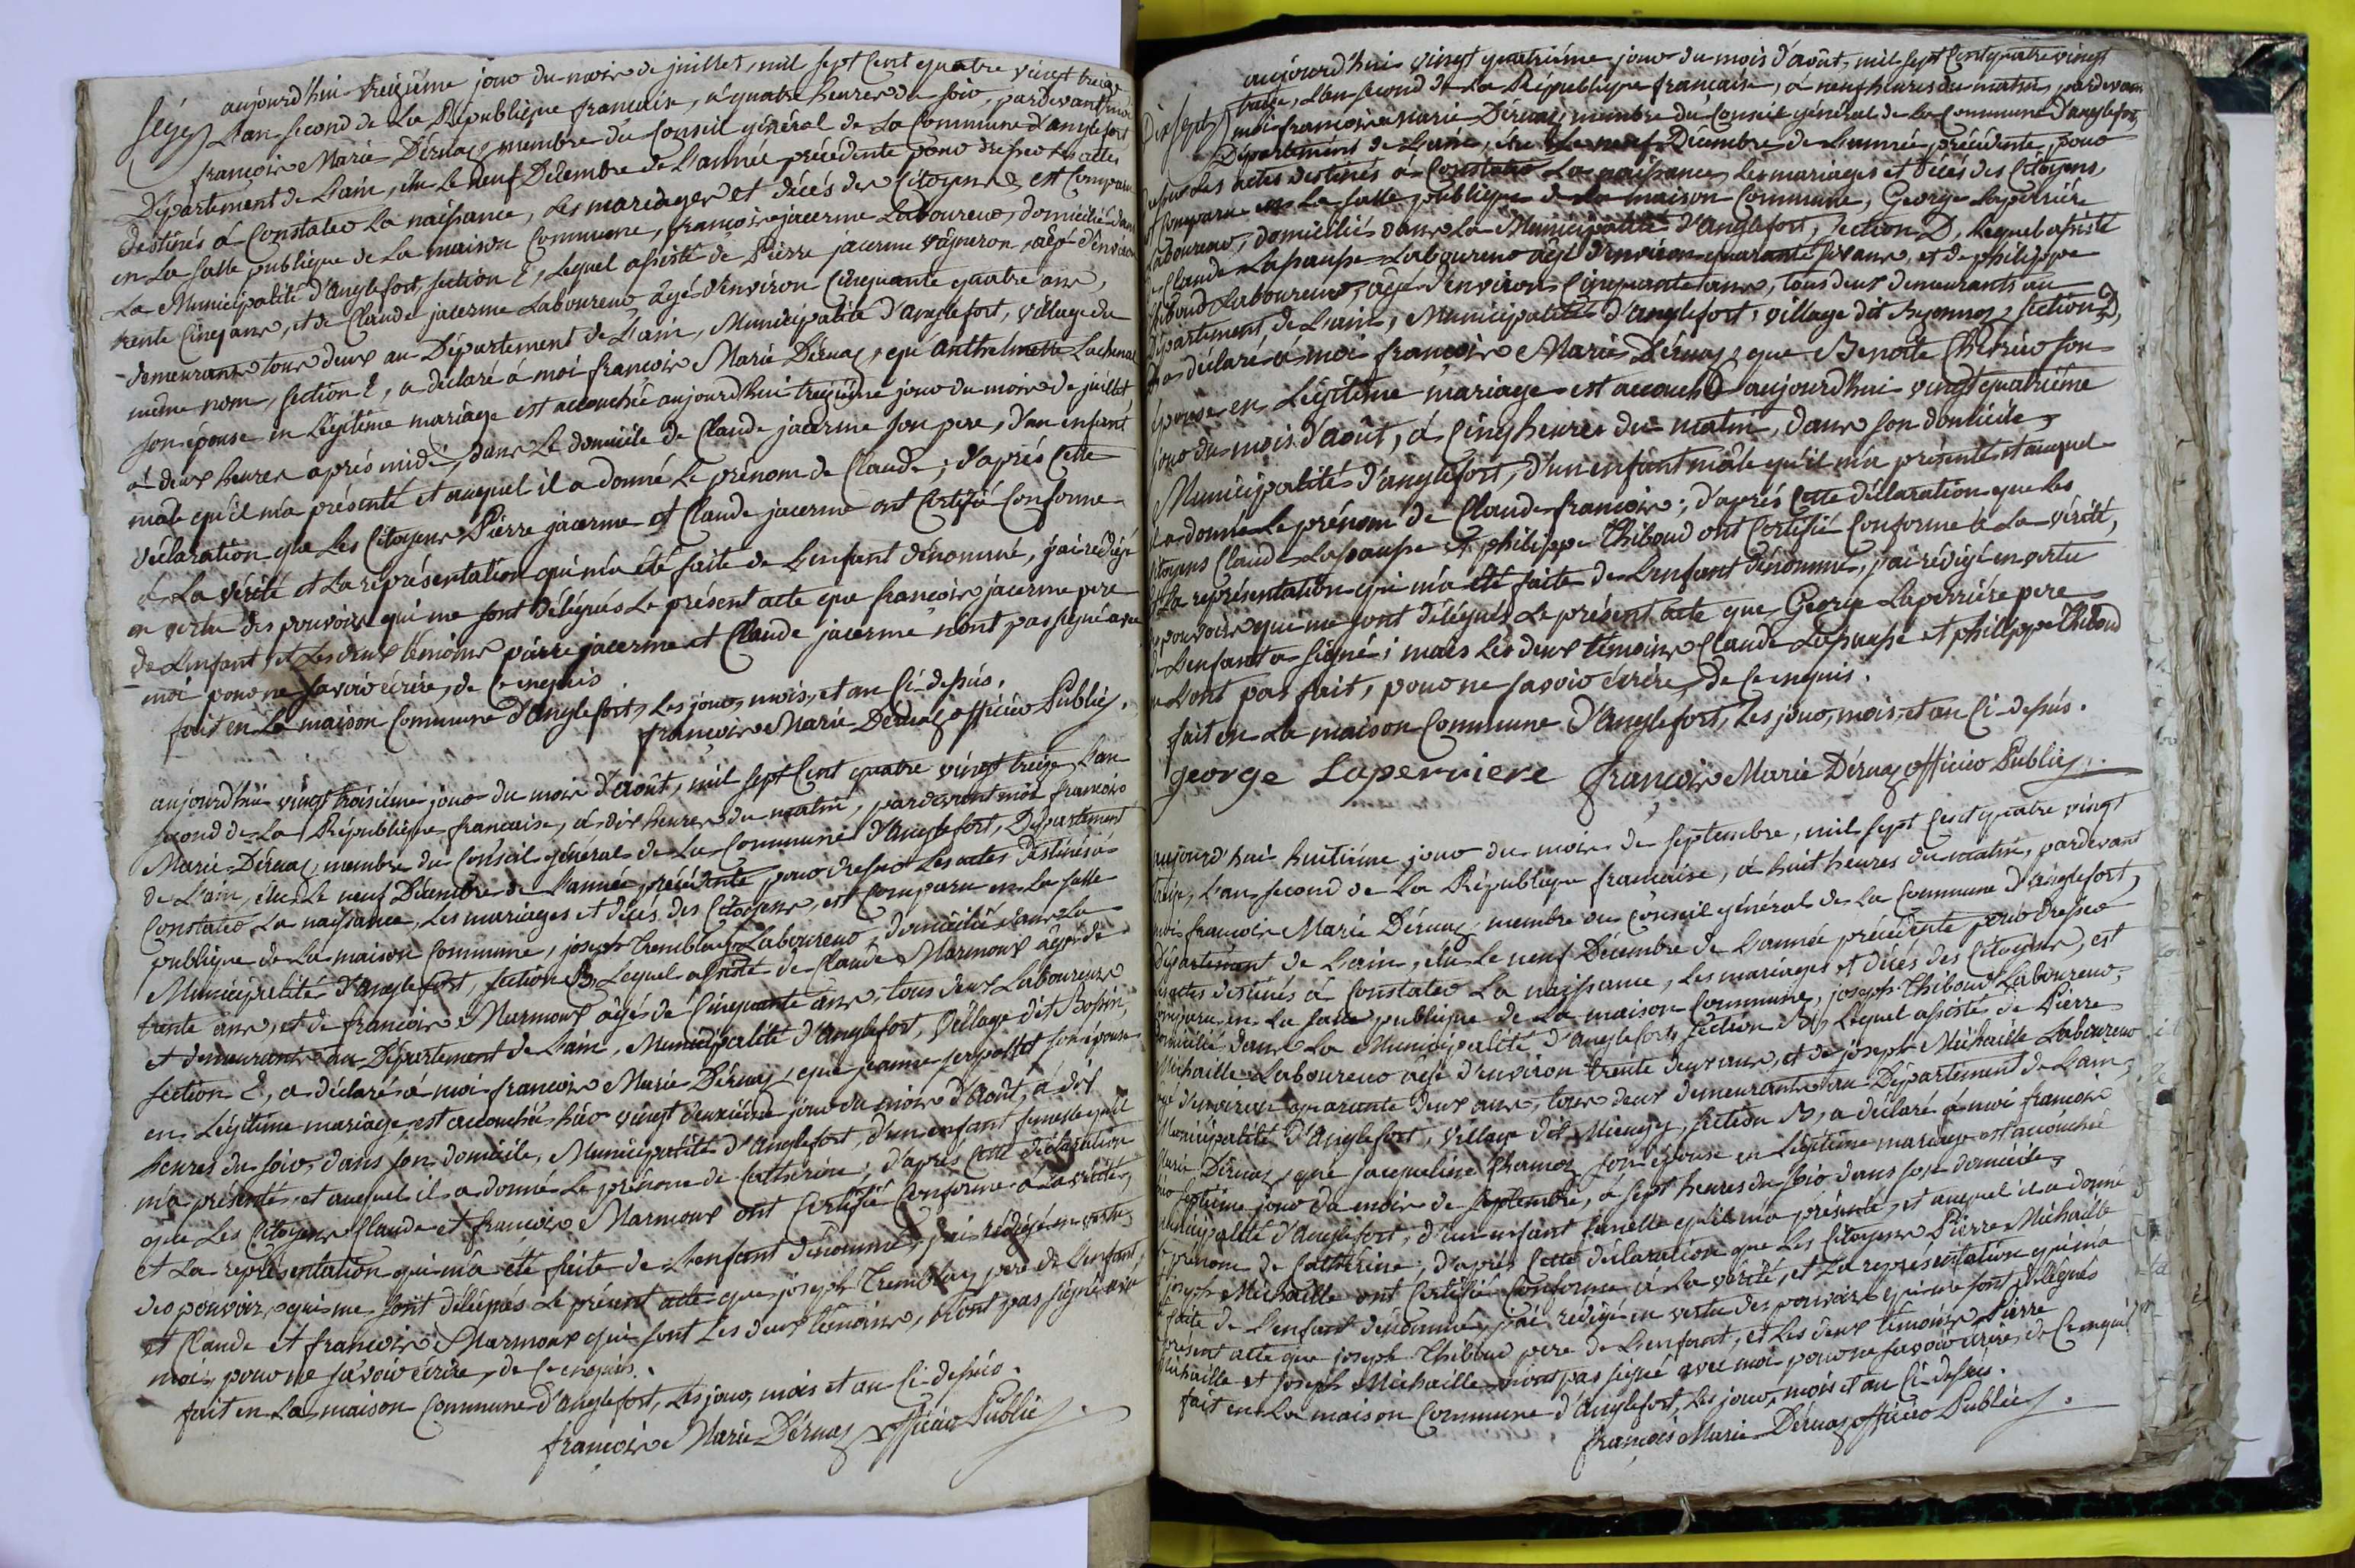 aujourd'hui treizième jour du mois de juillet, mil sept Cent quatre vingt treize
Sézes L'an second de La République française, à quatre heures du soir, pardevant moi
françois Marie Dérnaz membre du Conseil général de La Commune d'anglefort
Département de L'ain, élu Le neuf Décembre de L'année précédente pour dresser Les actes
destinés à Constater La naissance, Les mariages et décés des Citoyens est Comparu
en La salle publique de La maison Commune, françois jacerme Laboureur, domicilié dans
La Municipalité d'anglefort, section E, Lequel assisté de Pierre jacerme vigneron, âgé d'environ
trente Cinq ans, et de Claude jacerme Laboureur, âgé d'environ Cinquante quatre ans,
demeurants tous deux au Département de L'ain, Municipalité d'anglefort, village du
même nom, section E, a déclaré à moi françois Marie Dérnaz, que anthelmette Lachenal
son épouse en Légitime mariage est accouchée aujourd'hui treizième jour du mois de juillet
à deux heures après midi, dans Le domicile de Claude jacerme son pere, d'un enfant
mâle qu'il m'a présenté et auquel il a donné Le prénom de Claude; d'après Cette
déclaration que Les Citoyens Pierre jacerme et Claude jacerme ont Certifié Conforme
à La vérité et La représentation qui m'a été faite de L'enfant dénommé, j'ai rédigé
en vertu des pouvoirs qui me sont délégués Le présent acte que françois jacerme pere
de L'enfant et Les deux témoins pierre jacerme et Claude jacerme n'ont pas signé avec
moi pour ne savoir écrire, de Ce enquis.
fait en La maison Commune d'Anglefort, Les jour, mois, et an Ci-dessus.
françois Marie Dérnaz officier Public.
aujourd'hui vingt troisième jour du mois d'août, mil sept Cent quatre vingt treize, L'an
second de La République française, à dix heures du matin, pardevant moi françois
Marie Dérnaz, membre du Conseil général de La Commune d'Anglefort, Département
de L'ain, élu Le neuf Décembre de L'année précédente pour dresser Les actes Destinés à
Constater La naissance, Les mariages et décés des Citoyens, est Comparu en La salle
publique de La maison Commune, joseph Tremblay Laboureur, domicilié dans La
Municipalité d'anglefort, section B, Lequel assisté de Claude Marmoux âgé de
trente ans, et de françois Marmoux âgé de Cinquante ans, tous deux Laboureurs
et demeurants au Département de L'ain, Municipalité d'Anglefort, Village dit Bossin,
section E, a déclaré à moi françois Marie Dérnaz, que jeanne serpollet son épouse
en Légitime mariage, est accouchée hier vingt deuxième jour du mois d'Août, à dix
heures du soir, dans son domicile, Municipalité d'Anglefort, d'un enfant femelle qu'il
m'a présenté, et auquel il a donné Le prénom de Catherine; d'après Cette déclaration
que Les Citoyens Claude et françois Marmoux ont Certifié Conforme à La vérité,
et La représentation qui m'a été faite de L'enfant dénommé, j'ai rédigé en vertu
des pouvoirs qui me sont délégués Le présent acte que joseph Tremblay pere de L'enfant,
et Claude et françois Marmoux qui sont Les deux témoins, n'ont pas signé avec
moi, pour ne savoir écrire, de Ce enquis.
fait en La maison Commune d'Anglefort, Les jour, mois et an Ci-dessus.
françois Marie Dérnaz officier Public.
aujourd'hui vingt quatrième jour du mois d'août, mil sept Cent quatre vingt
Dix sept treize, L'an second de La République française, à neuf heures du matin, pardevant
moi françois Marie Dérnaz, membre du Conseil général de La Commune d'anglefort,
Département de L'ain, élu Le neuf Décembre de L'année précédente, pour
dresser Les actes destinés à Constater La naissance, Les mariages et décés des Citoyens,
est Comparu en La salle publique de La maison Commune, George Laperrière
Laboureur, domicilié dans La Municipalité d'Anglefort, section D, Lequel assisté
de Claude Lapausse Laboureur âgé d'environ quarante six ans, et de philippe
thiboud Laboureur, âgé d'environ Cinquante ans, tous deux demeurants au
Département de L'ain, Municipalité d'anglefort, village dit Bezonnes, section D,
a déclaré à moi françois Marie Dérnaz, que Benoite Chersier son
épouse en Légitime mariage est accouché aujourd'hui vingt quatrième
jour du mois d'août, à Cinq heures du matin, dans son domicile,
Municipalité d'anglefort, d'un enfant mâle qu'il m'a présenté et auquel
il a donné Le prénom de Claude françois; d'après Cette déclaration que Les
Citoyens Claude Lapausse et philippe Thiboud ont Certifié Conforme à La vérité,
et La représentation qui m'a été faite de L'enfant dénommé, j'ai rédigé en vertu
des pouvoirs qui me sont délégués Le présent acte que George Laperrière pere
de L'enfant a signé; mais Les deux témoins Claude Lapausse et philippe Thiboud
ne L'ont pas fait, pour ne savoir écrire, de Ce enquis.
fait en La maison Commune d'Anglefort, Les jour, mois, et an Ci-dessus.
george Laperriere françois Marie Dérnaz officier Public.
aujourd'hui huitième jour du mois de septembre, mil sept Cent quatre vingt
treize, L'an second de La République française, à huit heures du matin, pardevant
moi françois Marie Dérnaz, membre du Conseil général de La Commune d'anglefort,
département de L'ain, élu Le neuf Décembre de L'année précédente pour dresser
Les actes destinés à Constater La naissance, Les mariages et décés des Citoyens, est
Comparu en La salle publique de La maison Commune, joseph Thiboud Laboureur,
domicilié dans La Municipalité d'Anglefort, section B, Lequel assisté de Pierre
Michaille Laboureur âgé d'environ trente deux ans, et de joseph Michaille Laboureur
âgé d'environ quarante deux ans, tous deux demeurants au Département de L'ain,
Municipalité d'Anglefort, village dit Mieugy, section B, a déclaré à moi françois
Marie Dérnaz, que jacqueline Chamoz son épouse en Légitime mariage est accouchée
hier septième jour du mois de septembre, à sept heures du soir dans son domicile,
Municipalité d'Anglefort, d'un enfant femelle qu'il m'a présenté, et auquel il a donné
Le prénom de Catherine, d'après Cette déclaration que Les Citoyens Pierre Michaille
et joseph Michaille ont Certifié Conforme à La vérité, et La représentation qui m'a
été faite de L'enfant dénommé, j'ai rédigé en vertu des pouvoirs qui me sont délégués
Le présent acte que joseph Thiboud pere de L'enfant, et Les deux témoins Pierre
Michaille et joseph Michaille n'ont pas signé avec moi pour ne savoir écrire, de Ce enquis
fait en La maison Commune d'Anglefort, Les jour, mois et an Ci-dessus.
françois Marie Dérnaz officier Public.